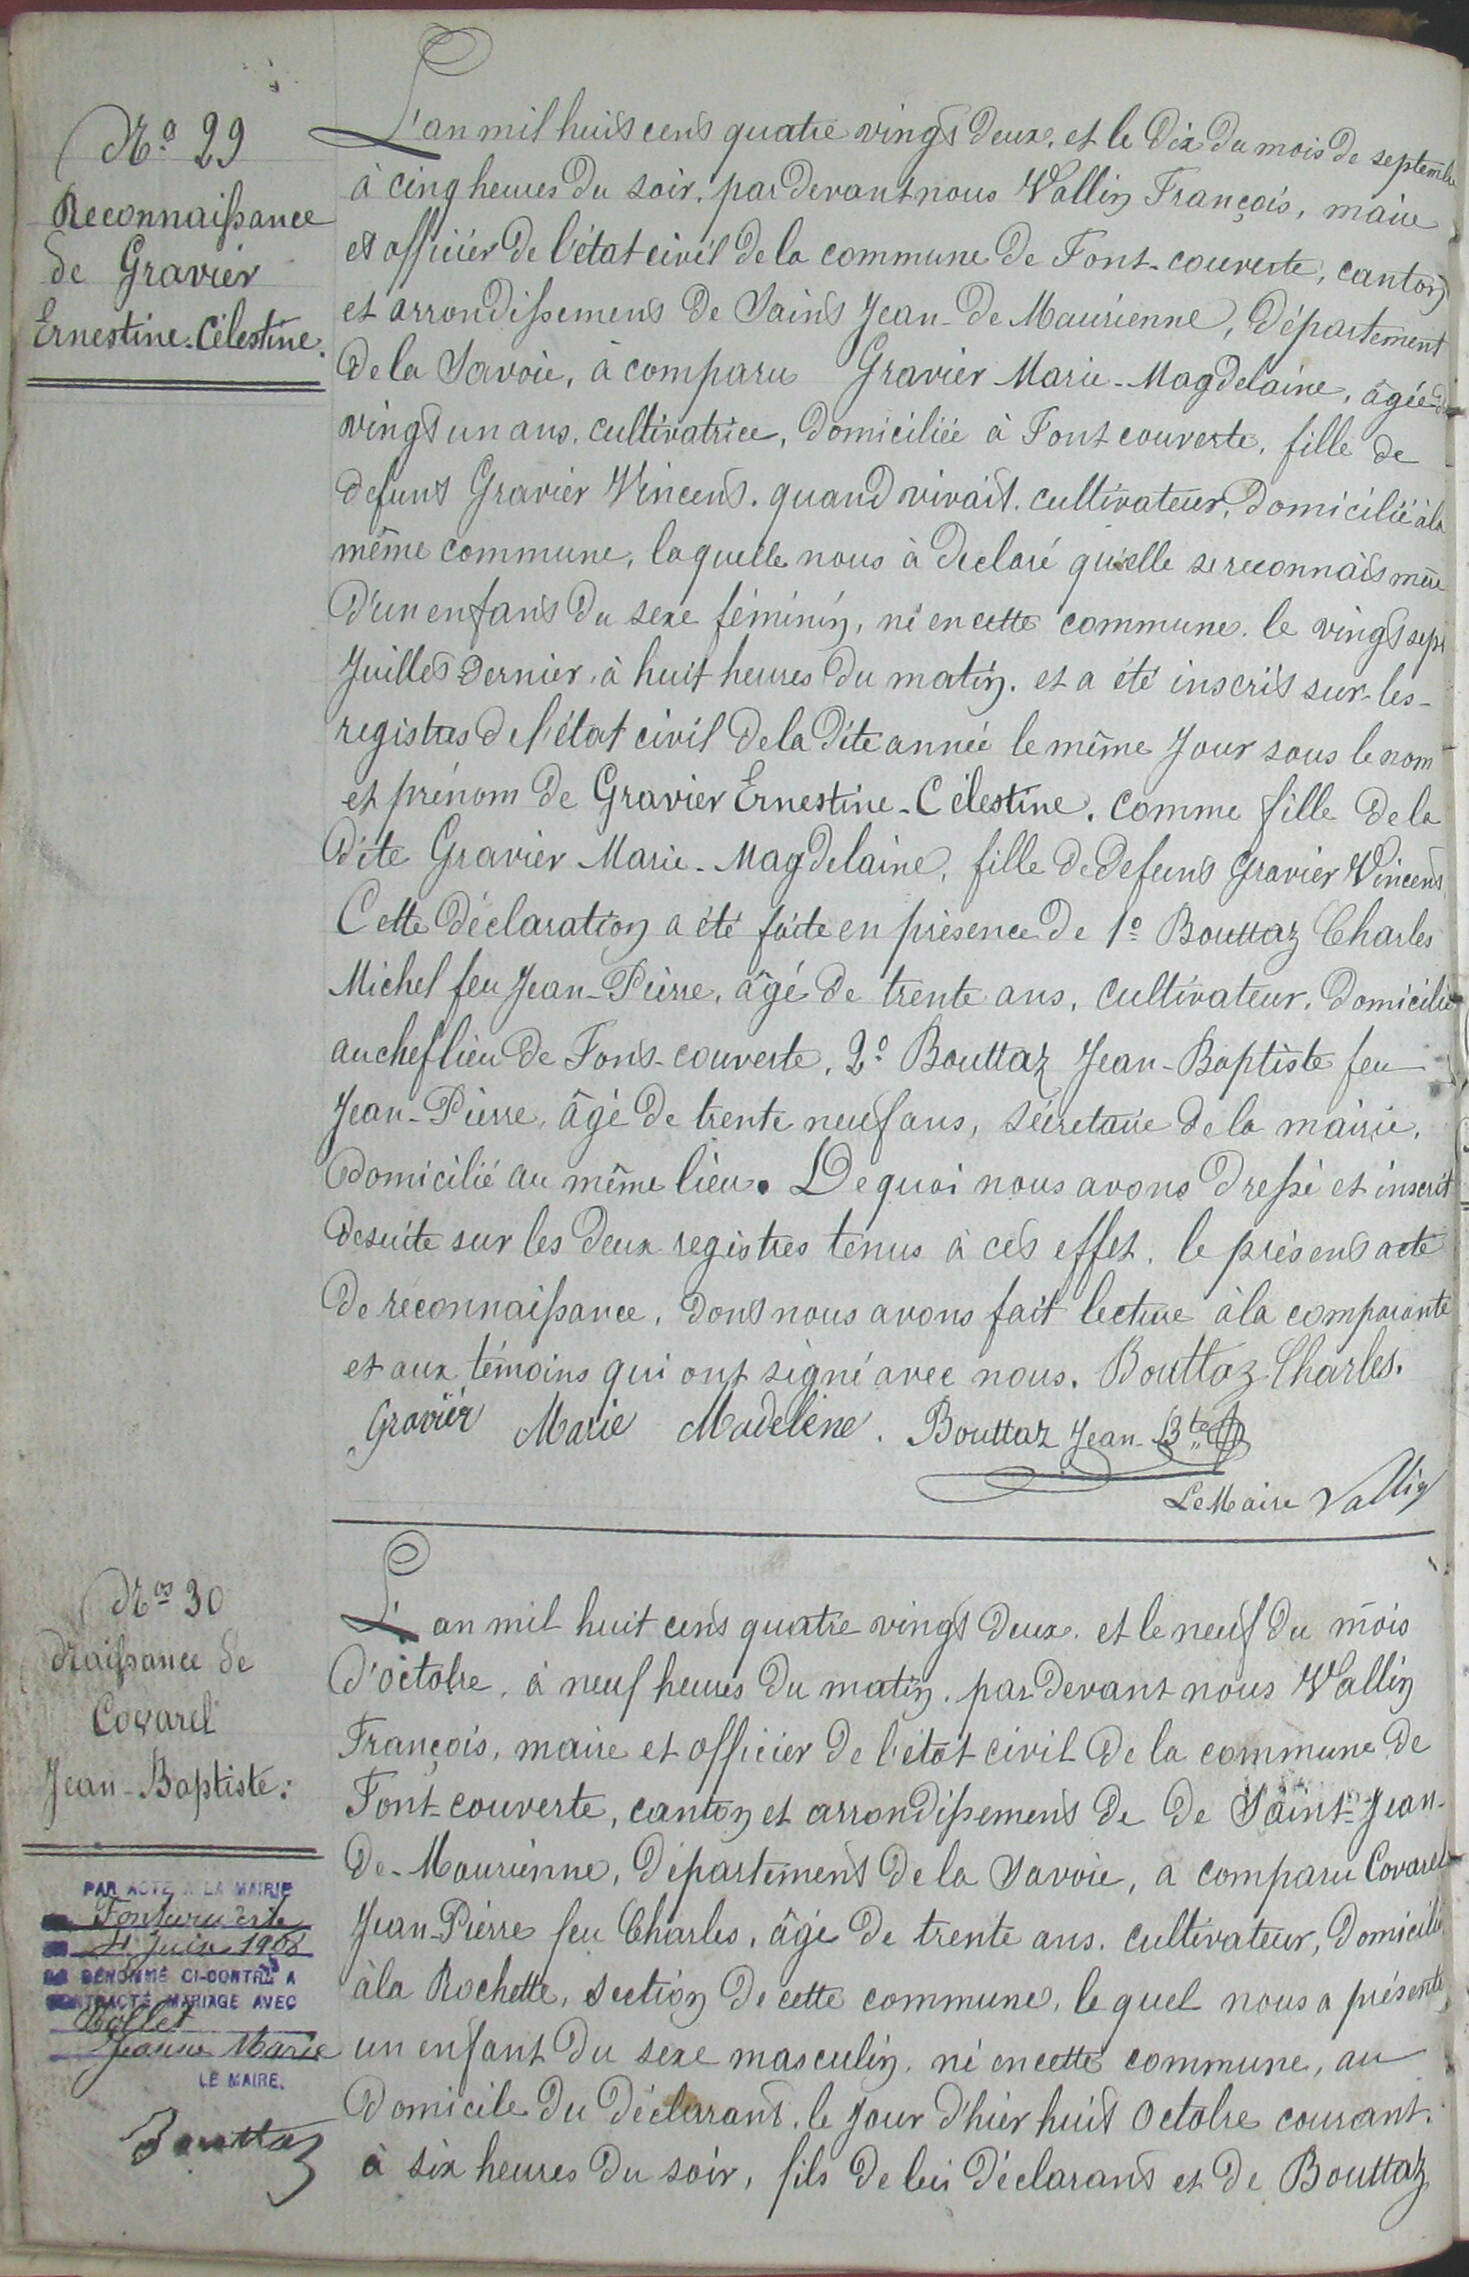 N.º 29
Reconnaissance
de Gravier
Ernestine-Célestine.
L'an mil huit cent quatre vingt deux, et le dix du mois de septembre
à cinq heures du soir, par devant nous Vallin François, maire
et officier de l'état civil de la commune de Font-couverte, canton
et arrondissement de Saint Jean-de Maurienne, département
de la Savoie, à comparu Gravier Marie-Magdelaine, âgée de
vingt un ans, cultivatrice, domiciliée à Font couverte, fille de
defunt Gravier Vincent, quand vivait, cultivateur, domicilié à la
même commune, laquelle nous à déclaré qu'elle se reconnait mère
d'un enfant du sexe féminin, né en cette commune, le vingt sept
Juillet dernier, à huit heures du matin, et a été inscrit sur les
registres de l'état civil de la dite année le même Jour sous le nom
et prénom de Gravier Ernestine-Célestine, comme fille de la
dite Gravier Marie-Magdelaine, fille de defunt Gravier Vincent
Cette déclaration a été faite en présence de 1º Bouttaz Charles
Michel feu Jean-Pierre, âgé de trente ans, cultivateur, domicilié
au chef lieu de Font-couverte, 2º Bouttaz Jean-Baptiste feu
Jean-Pierre, âgé de trente neuf ans, sécretaire de la mairie,
domicilié au même lieu. De quoi nous avons dressé et inscrit
desuite sur les deux registres tenus à cet effet, le présent acte
de reconnaissance, dont nous avons fait lecture à la comparante
et aux témoins qui ont signé avec nous. Bouttaz Charles.
Gravier Marie Madeleine. Bouttaz Jean-Bte
Le Maire Vallin
Nos 30
Naissance de
Covarel
Jean-Baptiste.
PAR ACTE A LA MAIRIE
Fontcouverte
Juin 1908
DÉNOMMÉ CI-CONTRE A
CONTRACTÉ MARIAGE AVEC
Mollet
Jeanne Marie
LE MAIRE,
Bouttaz
L'an mil huit cent quatre vingt deux, et le neuf du mois
d'octobre, à neuf heures du matin, par devant nous Vallin
François, maire et officier de l'état civil de la commune de
Font-couverte, canton et arrondissement de de Saint-Jean-
de-Maurienne, département de la Savoie, a comparu Covarel
Jean-Pierre feu Charles, âgé de trente ans, cultivateur, domicilié
à la Rochette, section de cette commune, le quel nous a présenté
un enfant du sexe masculin, né en cette commune, au
domicile du déclarant, le Jour d'hier huit Octobre courant,
à six heures du soir, fils de lui déclarant et de Bouttaz